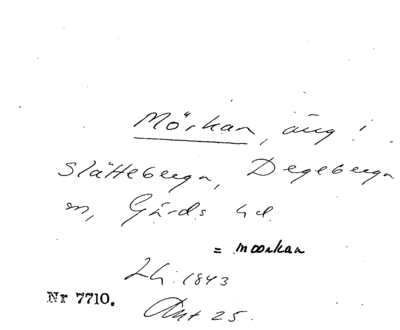 Mörkan, äng i
Slätteberga, Degeberga
sn, Gärds hd.
= moorkan
Lh. 1843
Nr 7710.
Akt 25.